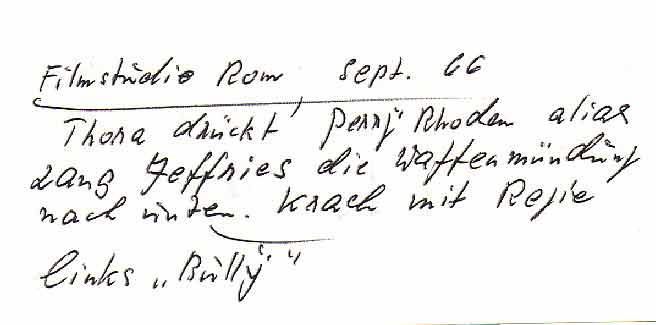 Filmstudio Rom, Sept. 66
Thora drückt Perry Rhodan alias
Lang Jeffries die Waffenmündung
nach unten. Krach mit Regie
links „Bully"